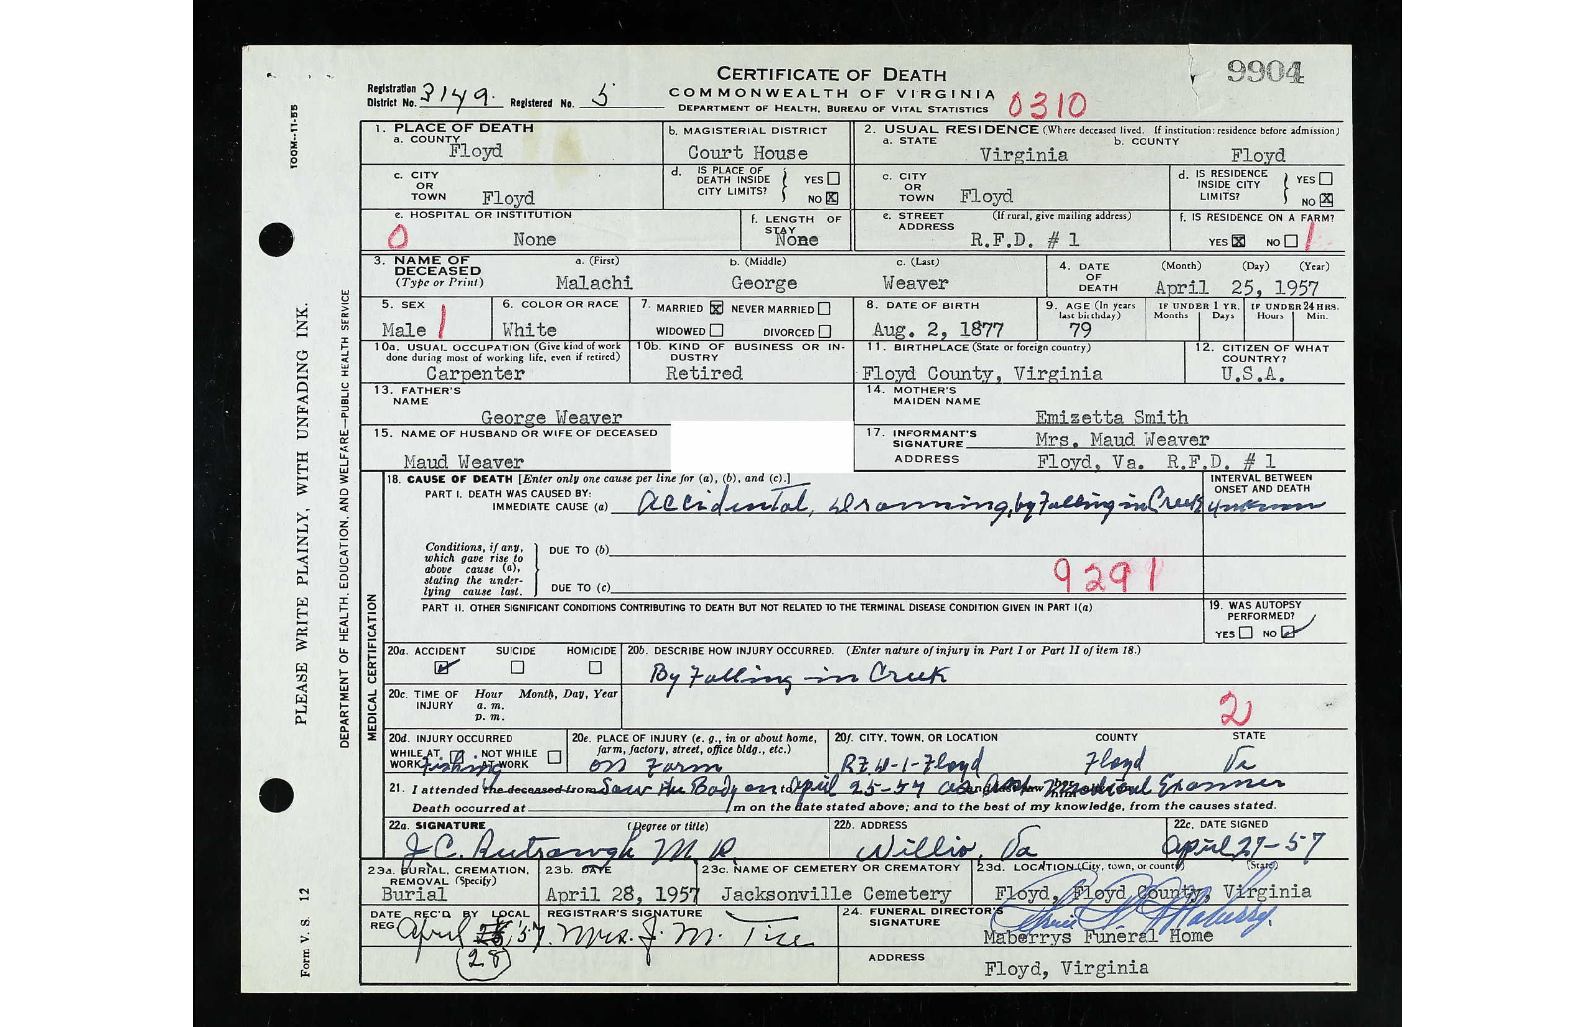 CERTIFICATE OF DEATH
COMMONWEALTH OF VIRGINIA
DEPARTMENT OF HEALTH, BUREAU OF VITAL STATISTICS
9904
0310
Registration District No. 3149. Registered No. 5
100M-11-55
PLEASE WRITE PLAINLY, WITH UNFADING INK.
DEPARTMENT OF HEALTH, EDUCATION, AND WELFARE—PUBLIC HEALTH SERVICE
Form V. S. 12
1. PLACE OF DEATH
a. COUNTY
Floyd
b. MAGISTERIAL DISTRICT
Court House
2. USUAL RESIDENCE (Where deceased lived. If institution: residence before admission)
a. STATE
Virginia
b. COUNTY
Floyd
c. CITY OR TOWN Floyd
d. IS PLACE OF DEATH INSIDE CITY LIMITS? YES NO
c. CITY OR TOWN Floyd
d. IS RESIDENCE INSIDE CITY LIMITS? YES NO
e. HOSPITAL OR INSTITUTION
0
None
f. LENGTH OF STAY
None
e. STREET ADDRESS (If rural, give mailing address)
R.F.D. # 1
f. IS RESIDENCE ON A FARM?
YES NO 1
3. NAME OF DECEASED
(Type or Print)
a. (First)
Malachi
b. (Middle)
George
c. (Last)
Weaver
4. DATE OF DEATH
(Month) (Day) (Year)
April 25, 1957
5. SEX
Male 1
6. COLOR OR RACE
White
7. MARRIED NEVER MARRIED
WIDOWED DIVORCED
8. DATE OF BIRTH
Aug. 2, 1877
9. AGE (In years last birthday)
79
IF UNDER 1 YR.
Months Days
IF UNDER 24 HRS.
Hours Min.
10a. USUAL OCCUPATION (Give kind of work done during most of working life, even if retired)
Carpenter
10b. KIND OF BUSINESS OR INDUSTRY
Retired
11. BIRTHPLACE (State or foreign country)
Floyd County, Virginia
12. CITIZEN OF WHAT COUNTRY?
U.S.A.
13. FATHER'S NAME
George Weaver
14. MOTHER'S MAIDEN NAME
Emizetta Smith
15. NAME OF HUSBAND OR WIFE OF DECEASED
Maud Weaver
17. INFORMANT'S SIGNATURE Mrs. Maud Weaver
ADDRESS Floyd, Va. R.F.D. # 1
MEDICAL CERTIFICATION
18. CAUSE OF DEATH [Enter only one cause per line for (a), (b), and (c).]
INTERVAL BETWEEN ONSET AND DEATH
PART I. DEATH WAS CAUSED BY:
IMMEDIATE CAUSE (a) Accidental, Drowning, by Falling in Creek
unknown
Conditions, if any, which gave rise to above cause (a), stating the underlying cause last.
DUE TO (b)
DUE TO (c)
9291
PART II. OTHER SIGNIFICANT CONDITIONS CONTRIBUTING TO DEATH BUT NOT RELATED TO THE TERMINAL DISEASE CONDITION GIVEN IN PART I(a)
19. WAS AUTOPSY PERFORMED?
YES NO
20a. ACCIDENT SUICIDE HOMICIDE
20b. DESCRIBE HOW INJURY OCCURRED. (Enter nature of injury in Part I or Part II of item 18.)
By Falling in Creek
20c. TIME OF INJURY Hour Month, Day, Year
a. m.
p. m.
2
20d. INJURY OCCURRED
WHILE AT WORK NOT WHILE AT WORK
Fishing
20e. PLACE OF INJURY (e. g., in or about home, farm, factory, street, office bldg., etc.)
on Farm
20f. CITY, TOWN, OR LOCATION COUNTY STATE
Floyd Floyd Va
21. I attended the deceased from Saw the Body on to April 25-57 as Medical Examiner
Death occurred at m on the date stated above; and to the best of my knowledge, from the causes stated.
22a. SIGNATURE (Degree or title)
J.C. M D
22b. ADDRESS
Willis, Va
22c. DATE SIGNED
April 27-57
23a. BURIAL, CREMATION, REMOVAL (Specify)
Burial
23b. DATE
April 28, 1957
23c. NAME OF CEMETERY OR CREMATORY
Jacksonville Cemetery
23d. LOCATION (City, town, or county) (State)
Floyd, Floyd County, Virginia
DATE REC'D BY LOCAL REG
April '57
28
REGISTRAR'S SIGNATURE
Mrs. J. M. Tice
24. FUNERAL DIRECTOR'S SIGNATURE
Maberrys Funeral Home
ADDRESS
Floyd, Virginia